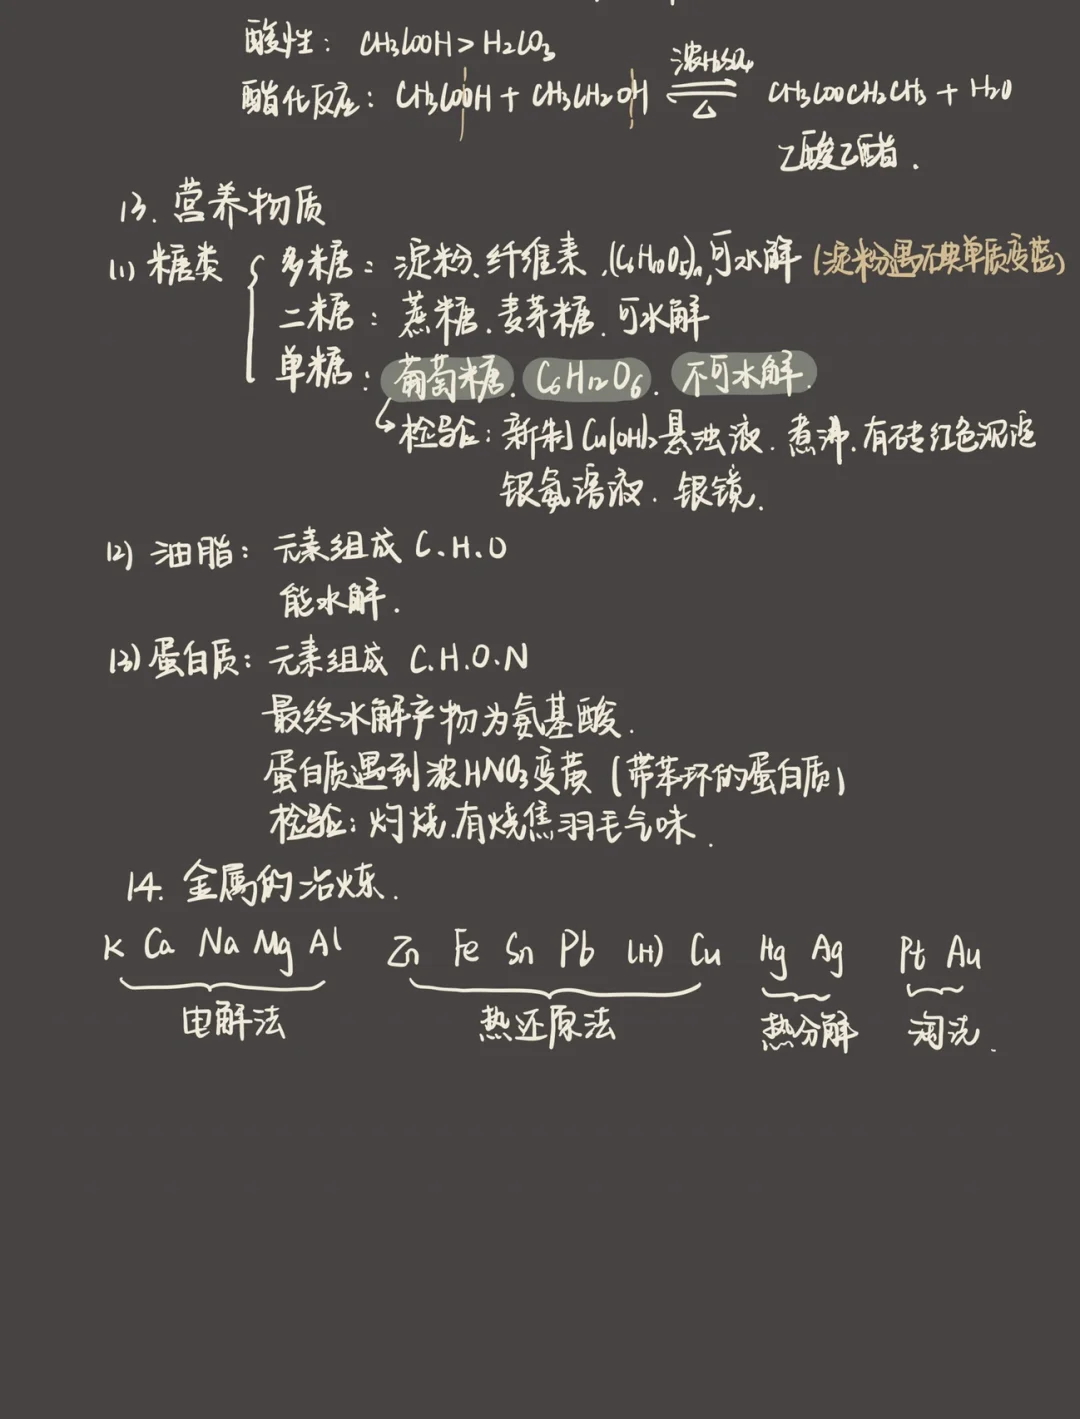 酸性： CH3COOH > H2CO3
酯化反应：CH3COOH + CH3CH2OH ⇌ 浓H2SO4 △ CH3COOCH2CH3 + H2O
乙酸乙酯.
13. 营养物质
(1) 糖类 { 多糖：淀粉、纤维素，(C6H10O5)n, 可水解 (淀粉遇不块单质变蓝)
二糖：蔗糖、麦芽糖. 可水解
单糖：葡萄糖. C6H12O6. 不可水解.
↳检验：新制Cu(OH)2悬浊液. 煮沸. 有砖红色沉淀
银氨溶液. 银镜.
(2) 油脂：元素组成 C.H.O
能水解.
(3) 蛋白质：元素组成 C.H.O.N
最终水解产物为氨基酸.
蛋白质遇到浓HNO3变黄 (带苯环的蛋白质)
检验：灼烧.有烧焦羽毛气味.
14. 金属的冶炼.
K Ca Na Mg Al Zn Fe Sn Pb (H) Cu Hg Ag Pt Au
电解法 热还原法 热分解 淘洗.